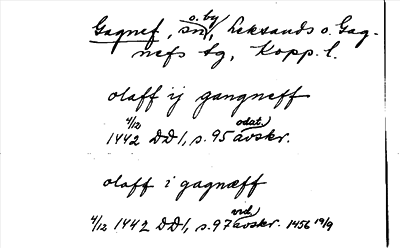 Gagnef, sn o. by, Leksands o. Gag-
nefs tg, Kopp. l.
olaff ij gangneff
4/12 1442 DD1, s. 95 odat. avskr.
olaff i gagnæff
4/12 1442 DD1, s. 97 vid. avskr. 1456 19/9